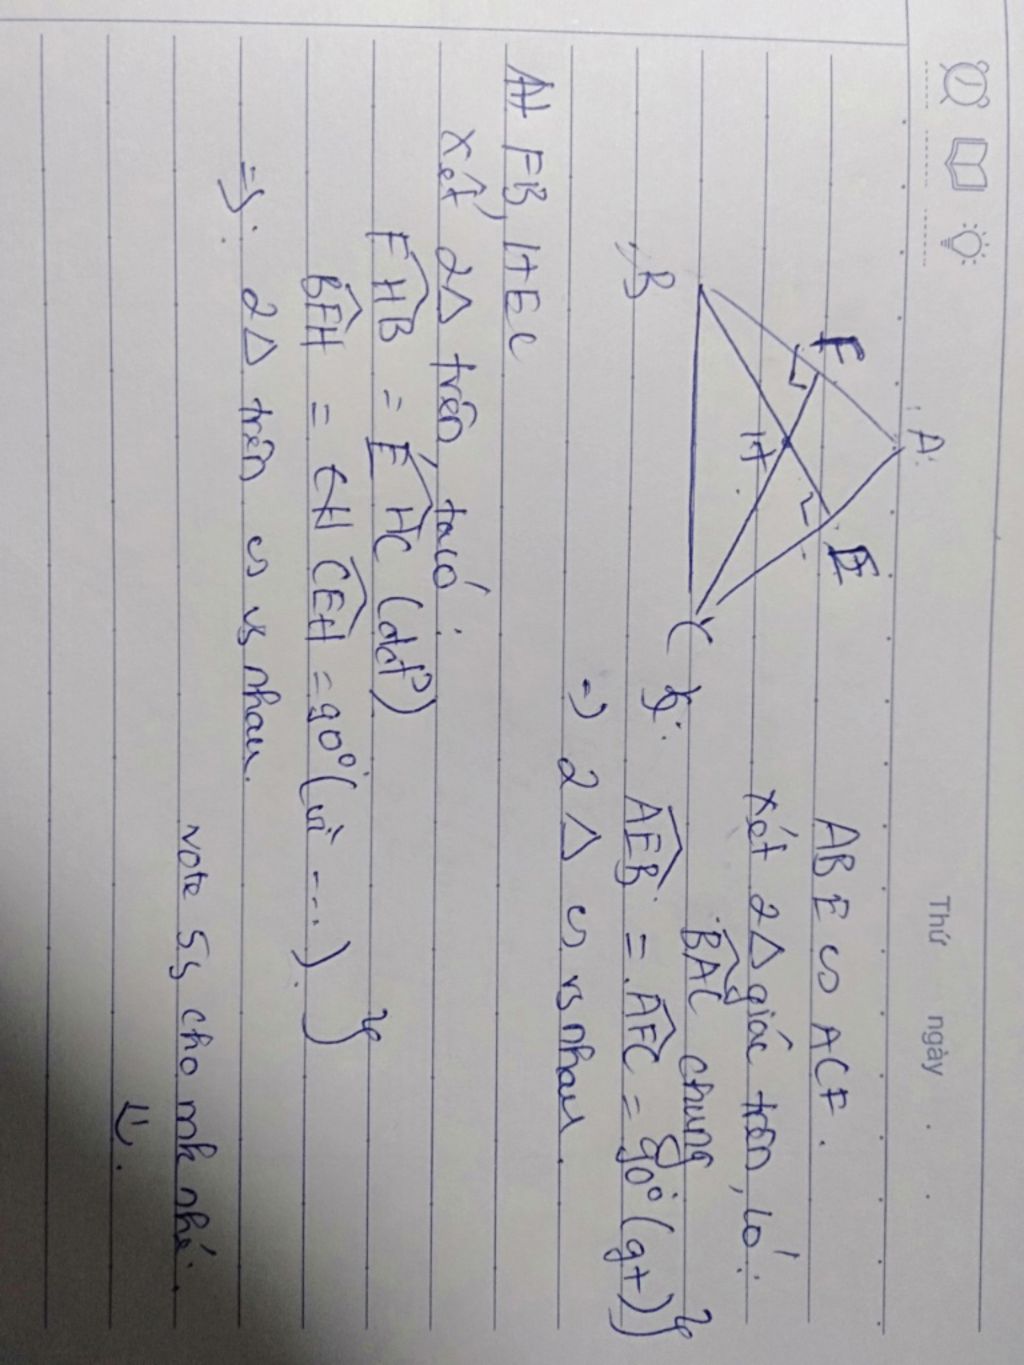 Thứ ngày
A
F
E
H
B
C
ABE ∽ ACF.
xét 2△ giác trên, có:
BAC chung
AEB = AFC = 90° (gt)
=) 2 △ ∽ vs nhau.
FB, HEC
xét, 2△ trên, ta có:
FHB = EHC (dd)
BFH = CEH = 90° (vì ...)
=). 2△ trên ∽ vs nhau.
vote 5s cho mk nhé.